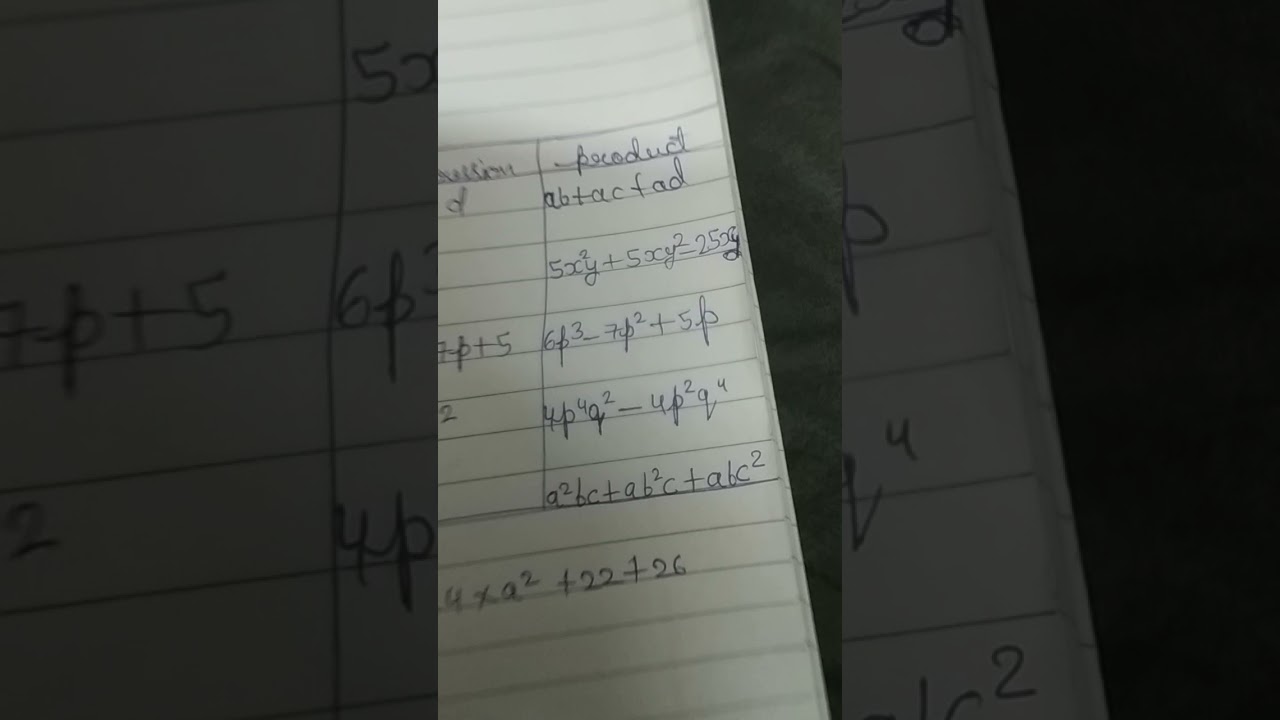 product
d ab+ac+ad
5x²y+5xy²-25xy
7p+5 6p³-7p²+5p
2 4p⁴q²-4p²q⁴
a²bc+ab²c+abc²
4×a²+22+26